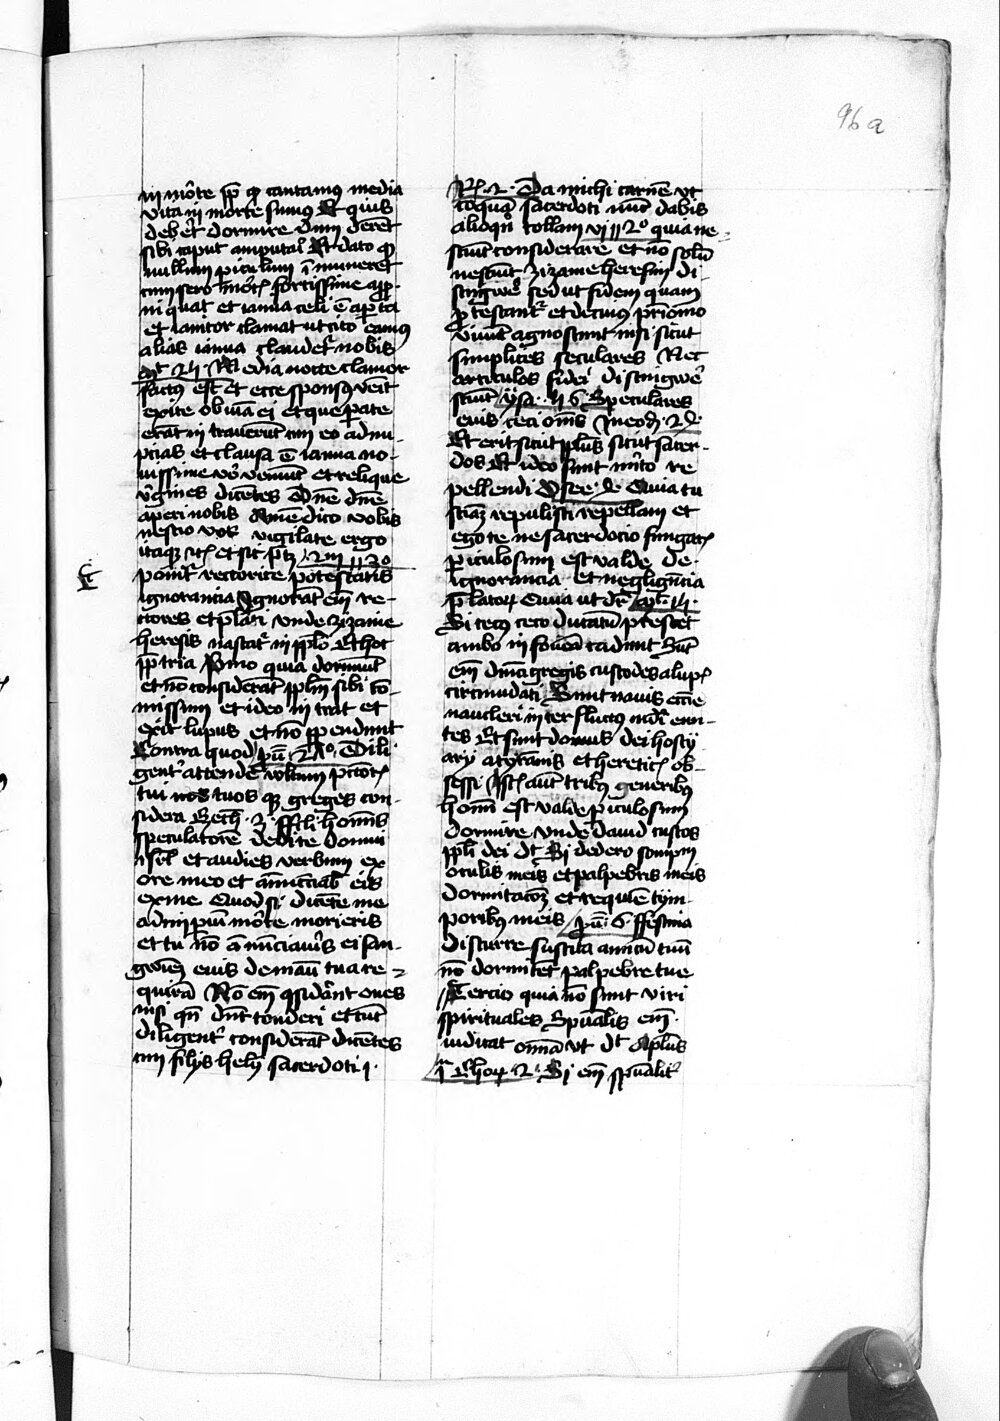 96 a
in mõte ꝓp̃ qđ cantamus media
vita in morte sumus Et quis
debʼet dormire dum deret̃
sibi caput amputaʼ Et dato qđ
nullum piculum ĩmineret
cum sero
et ianua celi ẽ apta
et ianitor clamat ut cito eamus
alias ianua claudetʼ nobis
Mt̃ 24 · Media nocte clamor
factus est et ecce sponsus veĩt
exite obviã ei et que pate
erãt in trauerũt cum eo ad nu-
ptias et clausa ẽ ianua no-
uissime vᵒ veniũt et relique
vʼgines dicẽtes Dñe dñe
aperi nobis Amẽ dico vobis
nescio vos vigilate ergo
itaqʒ
ponitʼ rectorice potestatis
ignorancia Ignorat̃ em̃ re-
ctores et plati vnde zizanie
heresis nascatʼ in ppło Et hoc
ꝓp tria Pʼmo quia dormiũt
et nõ considerãt ppłm sibi cõ-
missum et ideo in trat et
exit lupus et nõ ꝓpendunt
Contra quod Dili
gentʼ attende vultum
tui tuos qʒ greges con-
sidera Eech · 3 · ffili hom̃is
speculatorẽ debite domui
isrł et audies verbum ex
ore meo et añũciab eis
ex me Quod si dicẽte me
ad impiũ mõte morieris
et tu nõ añũnciauʼis ei san-
gwiẽ eius de manũ tua re-
quirã Nõ em̃ ꝯsidãnt oues
nisi qñ dñt tonderi et tũc
diligentʼ considerãt dicẽtes
cum filijs hely sacerdoti i ·
R · 2 · Da michi carnẽ vt
coquã sacerdoti nũc dabis
alioqñ tollam vi quia ne-
sciũt considerare et nõ solũ
nesciũt zizanie heresim di-
stingwẽ sed ut fidem quam
ptestantʼ et decimus
viuũt agnoscunt nisi sicut
simplices seculares Nec
articulos fidei distingwẽ
sciũt ysa · Speculares
eius ceci om̃s
Et erit sicut ppłus sicut sacer-
dos Et ideo sunt mʼito re
pellendi Osee · Quia tu
sciaʒ repulisti repellam et
ego te ne sacerdocio fungaris
piculosum est valde de
ignorancia et negligẽtia
platoꝝ Quia ut dʼr
Si cecus ceco ducatũ prestet
ambo in foueã cadunt Sũt
em̃ dñici gregis custodes a lupis
circumdati Sunt nauis ecc̃ie
naucleri inter fluctus mũdi eun-
tes Et sunt domus dei hosty
ary a tyrãnis et hereticis ob-
sessi Istis autẽ tribus generibus
homĩ est valde piculosum
dormire vnde dauid custos
ppłi dei dt̃ Si dedero sompnũ
oculis meis et palpebris meis
dormitacõʒ et requiẽ tym-
poribus meis puʼ · 6 · ffestina
discurre suscita amicũ tuũ
nõ dormitet palpebre tue
Tercio quia nõ sunt viri
spirituales Spũalis em̃
iudicat om̃ia vt dt̃ Apłus
i Choꝝ · 2 · Si em̃ spũalitʼ